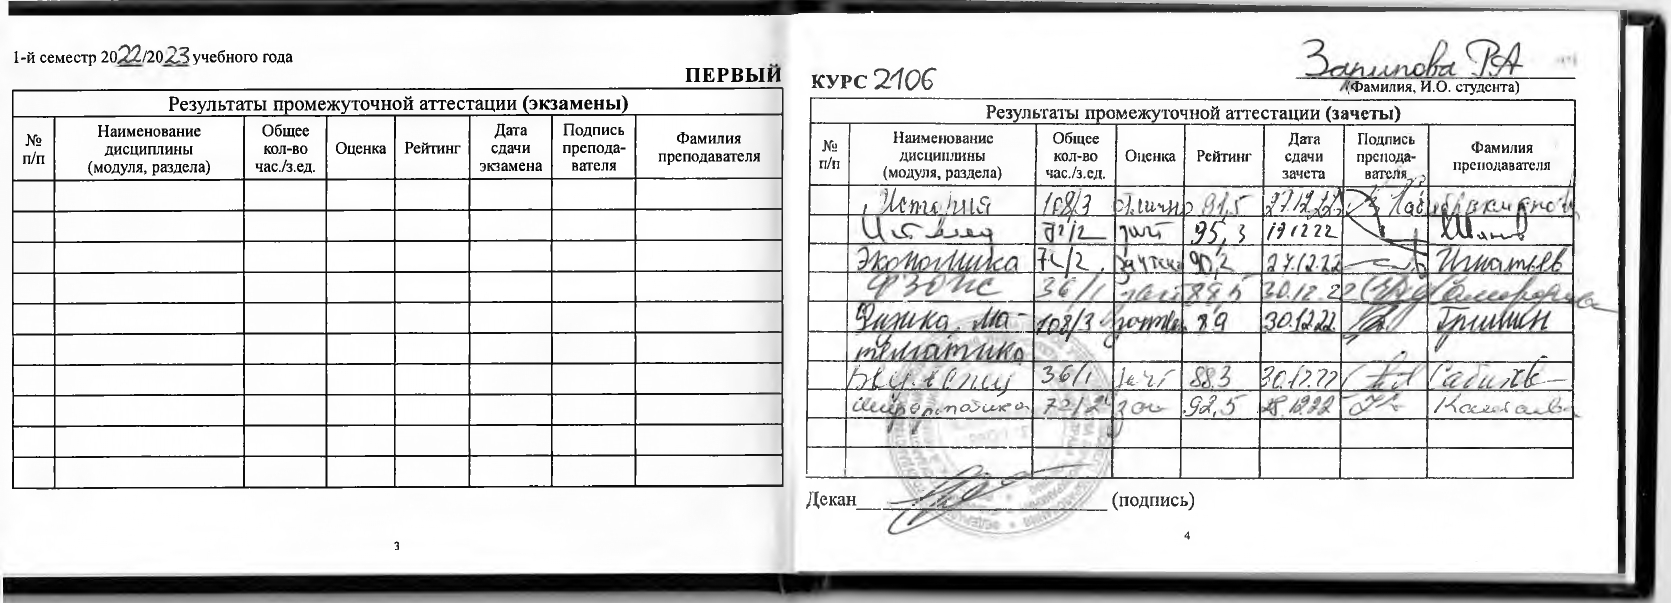 1-й семестр 2022/2023 учебного года
ПЕРВЫЙ
Результаты промежуточной аттестации (экзамены)
№ п/п
Наименование дисциплины (модуля, раздела)
Общее кол-во час./з.ед.
Оценка
Рейтинг
Дата сдачи экзамена
Подпись препода-вателя
Фамилия преподавателя
3
Зарипова РА
(Фамилия, И.О. студента)
КУРС 2106
Результаты промежуточной аттестации (зачеты)
№ п/п
Наименование дисциплины (модуля, раздела)
Общее кол-во час./з.ед.
Оценка
Рейтинг
Дата сдачи зачета
Подпись препода-вателя
Фамилия преподавателя
История 108/3 отлично 91,5 27.12.22
72/2 зачт 95,3 19.12.22
Экономика 72/2 90,2 27.12.22 Игнатьев
36/1 зачт 88,5 30.12.22
Физика, ма- 108/3 89 30.12.22 Гришин
тематика
36/1 зачт 88.3 30.12.22
72/2 зач 92,5 28.12.22
Декан (подпись)
4